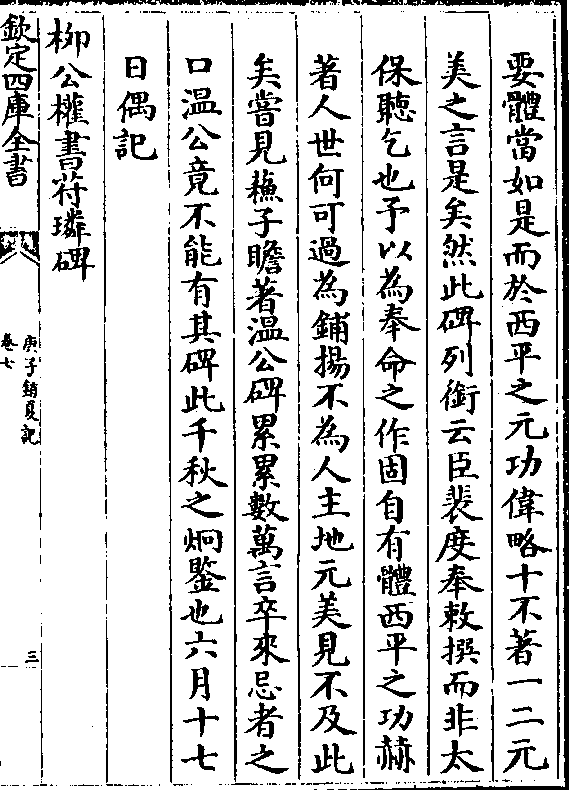 要體當如是而於西平之元功偉略十不著一二元
美之言是矣然此碑列銜云臣裴度奉敕撰而非太
保聽乞也予以為奉命之作固自有體西平之功赫
著人世何可過為鋪揚不為人主地元美見不及此
矣嘗見蘓子瞻著溫公碑累累數萬言卒來忌者之
口溫公竟不能有其碑此千秋之炯鑒也六月十七
日偶記
柳公權書苻璘碑
欽定四庫全書
庚子銷夏記
卷七
三